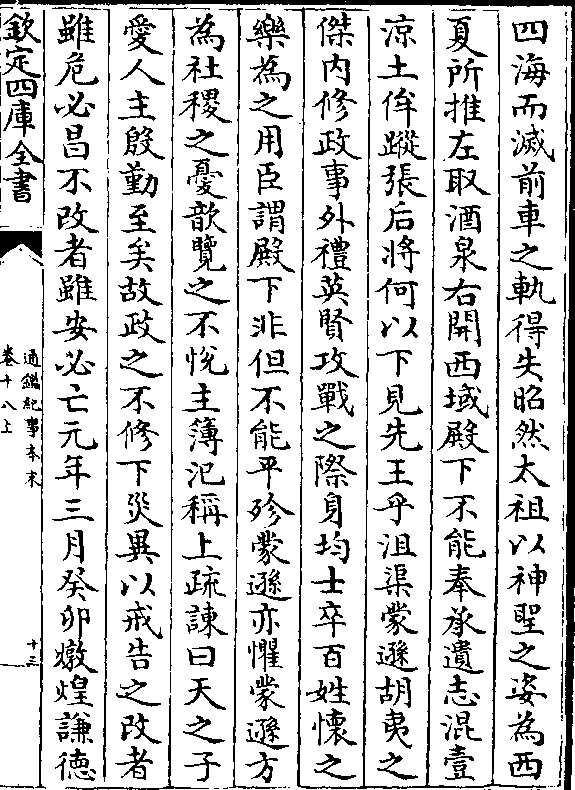 四海而滅前車之軌得失昭然太祖以神聖之姿為西
夏所推左取酒泉右開西域殿下不能奉承遺志混壹
涼土侔蹤張后將何以下見先王乎沮渠蒙遜胡夷之
傑内修政事外禮英賢攻戰之際身均士卒百姓懷之
樂為之用臣謂殿下非但不能平殄蒙遜亦懼蒙遜方
為社稷之憂歆覽之不悅主簿氾稱上疏諫曰天之子
愛人主殷勤至矣故政之不修下災異以戒告之改者
雖危必昌不改者雖安必亡元年三月癸卯燉煌謙德
欽定四庫全書
通鑑紀事本末
卷十八上
十三